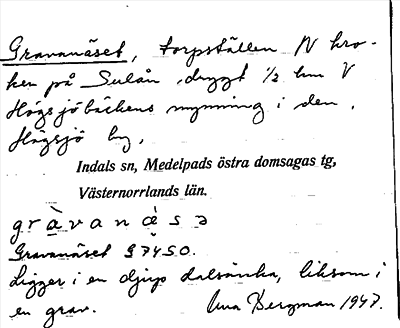 Gravanäset, torpställen N kro-
ken på Sulån, drygt 1/2 km V
Högsjöbäckens mynning i den,
Högsjö by,
Indals sn, Medelpads östra domsagas tg,
Västernorrlands län.
gràvanèsə
Gravanäset G745O.
Ligger i en djup dalsänka, liksom i
en grav. Bergman 1947.